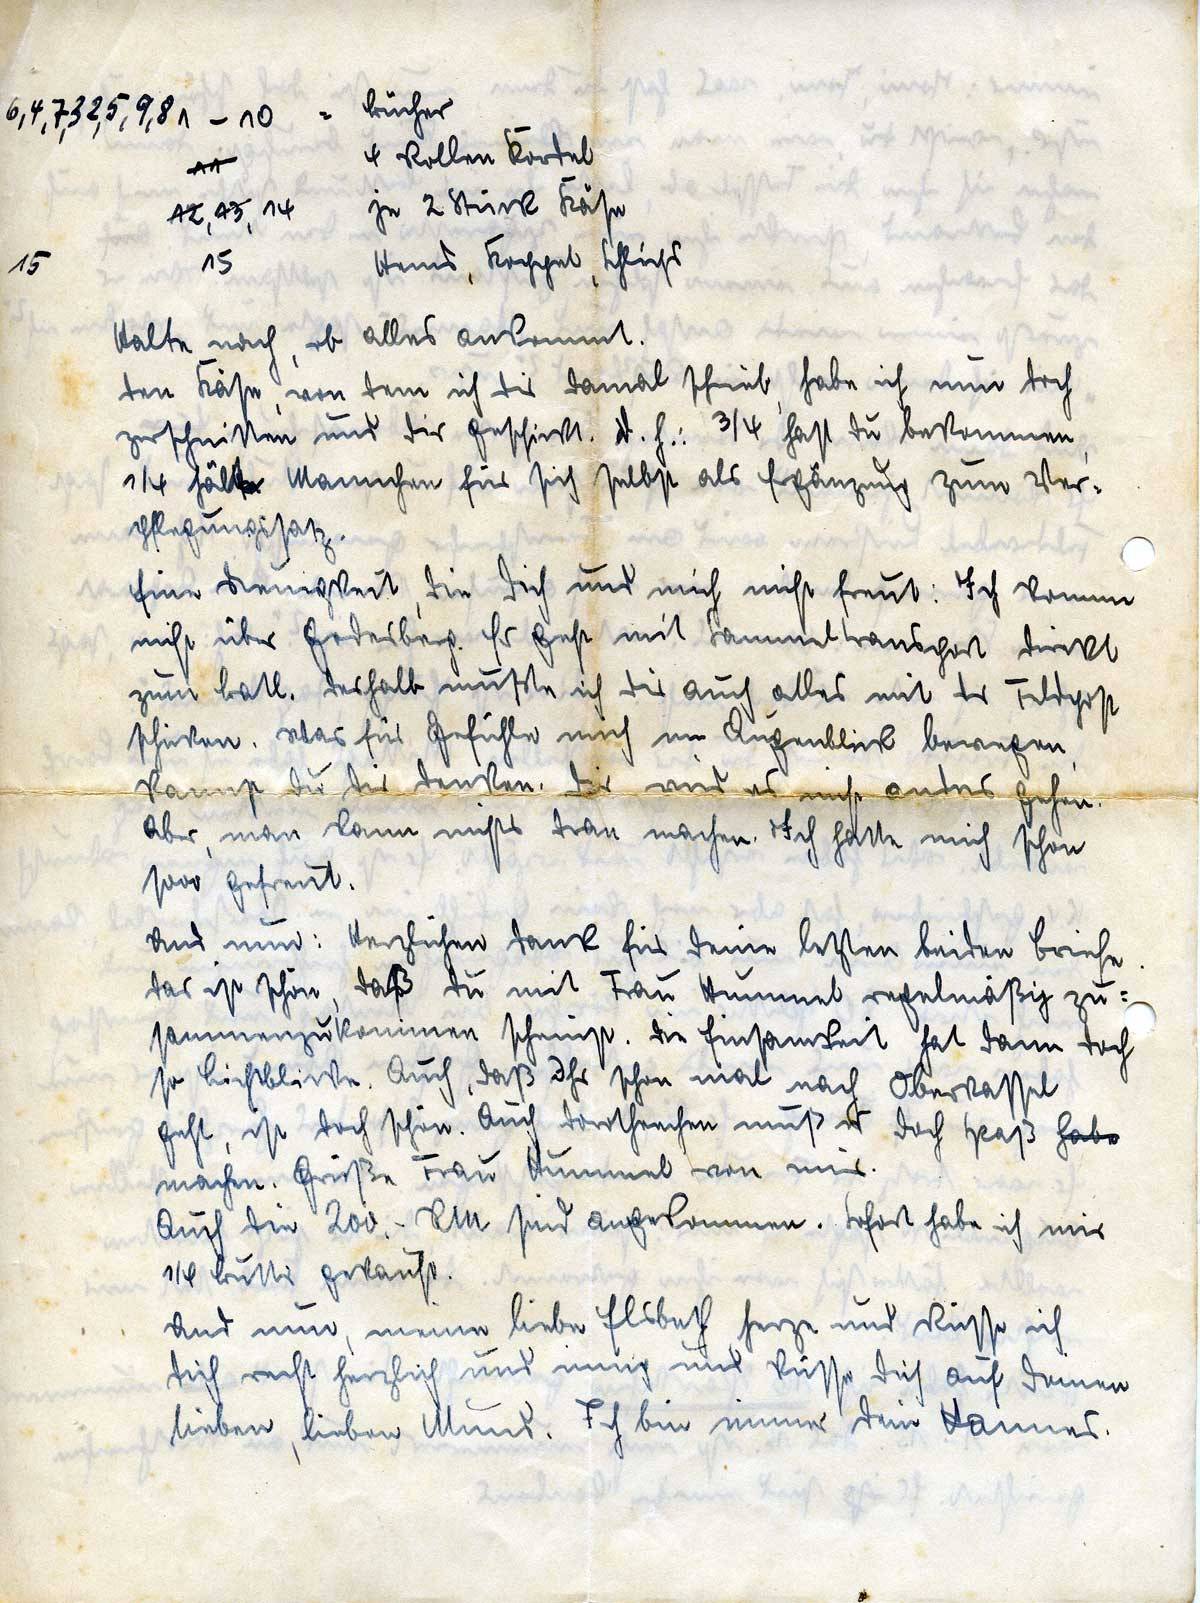 6,4,7,3,2,5,9,8 1 – 10 = Bücher
11 4 Rollen Kordel
12, 13, 14 je 2 Stück Käse
15 15 Hemd, Koppel, Schlips
Halte nach, ob alles ankommt.
Den Käse, von dem ich Dir damal schrieb, habe ich nun doch
zerschnitten und Dir geschickt. D. h.: 3/4 hast Du bekommen,
1/4 hält Mannchen für sich selbst als Ergänzung zum Ver-
pflegungssatz.
Eine Neuigkeit, die Dich und mich nicht freut: Ich komme
nicht über Godesberg. Es geht mit Sammeltransport direkt
zum Batl. Deshalb mußte ich Dir auch alles mit der Feldpost
schicken. Was für Gefühle mich im Augenblick bewegen,
kannst Du Dir denken. Dir wird es nicht anders gehen.
Aber, man kann nichts dran machen. Ich hatte mich schon
sooo gefreut.
Und nun: Herzlichen Dank für Deine letzten beiden Briefe.
Das ist schön, daß Du mit Frau Hummel regelmäßig zu-
sammenzukommen scheinst. Die Einsamkeit hat dann doch
so Lichtblicke. Auch, daß Ihr schon mal nach Oberkassel
geht, ist doch schön. Auch Dorotheechen muß es doch Spaß habe
machen. Grüße Frau Hummel von mir.
Auch die 200,- RM sind angekommen. Sofort habe ich mir
1/4 Butter gekauft.
Und nun, meine liebe Elsbeth herze und küsse ich
Dich recht herzlich und innig und küsse Dich auf Deinen
lieben, lieben Mund. Ich bin immer Dein Hannes.